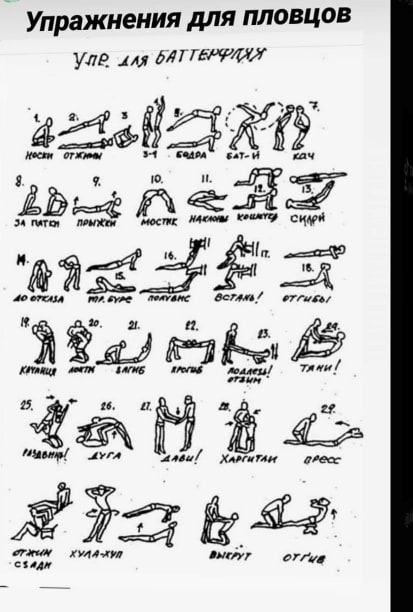 Упражнения для пловцов
УПР. ДЛЯ БАТТЕРФЛЯЯ
1. 2. 3. 5. 7.
НОСКИ ОТЖИМЫ 3-1 БЕДРА БАТ-Й КАЧ
8. 9. 10. 11. 12. 13.
ЗА ПЯТКИ ПРЫЖКИ МОСТИК НАКЛОНЫ КОШЕЧКА
14. 15. 16. 17. 18.
ДО ОТКАЗА ПОЛУВИС ВСТАНЬ! ОТГИБЫ
19. 20. 21. 22. 23. 24.
ЛОКТИ ЗАГИБ ПРОГИБ ПОДЛЕЗЬ! ТЯНИ!
ОТЖИМ
25. 26. 27. 28. 29.
РАЗДВИНЬ! ДУГА ДАВИ! ХАРГИТАИ ПРЕСС
ОТЖИМ ХУЛА-ХУП ВЫКРУТ ОТГИБ
СЗАДИ